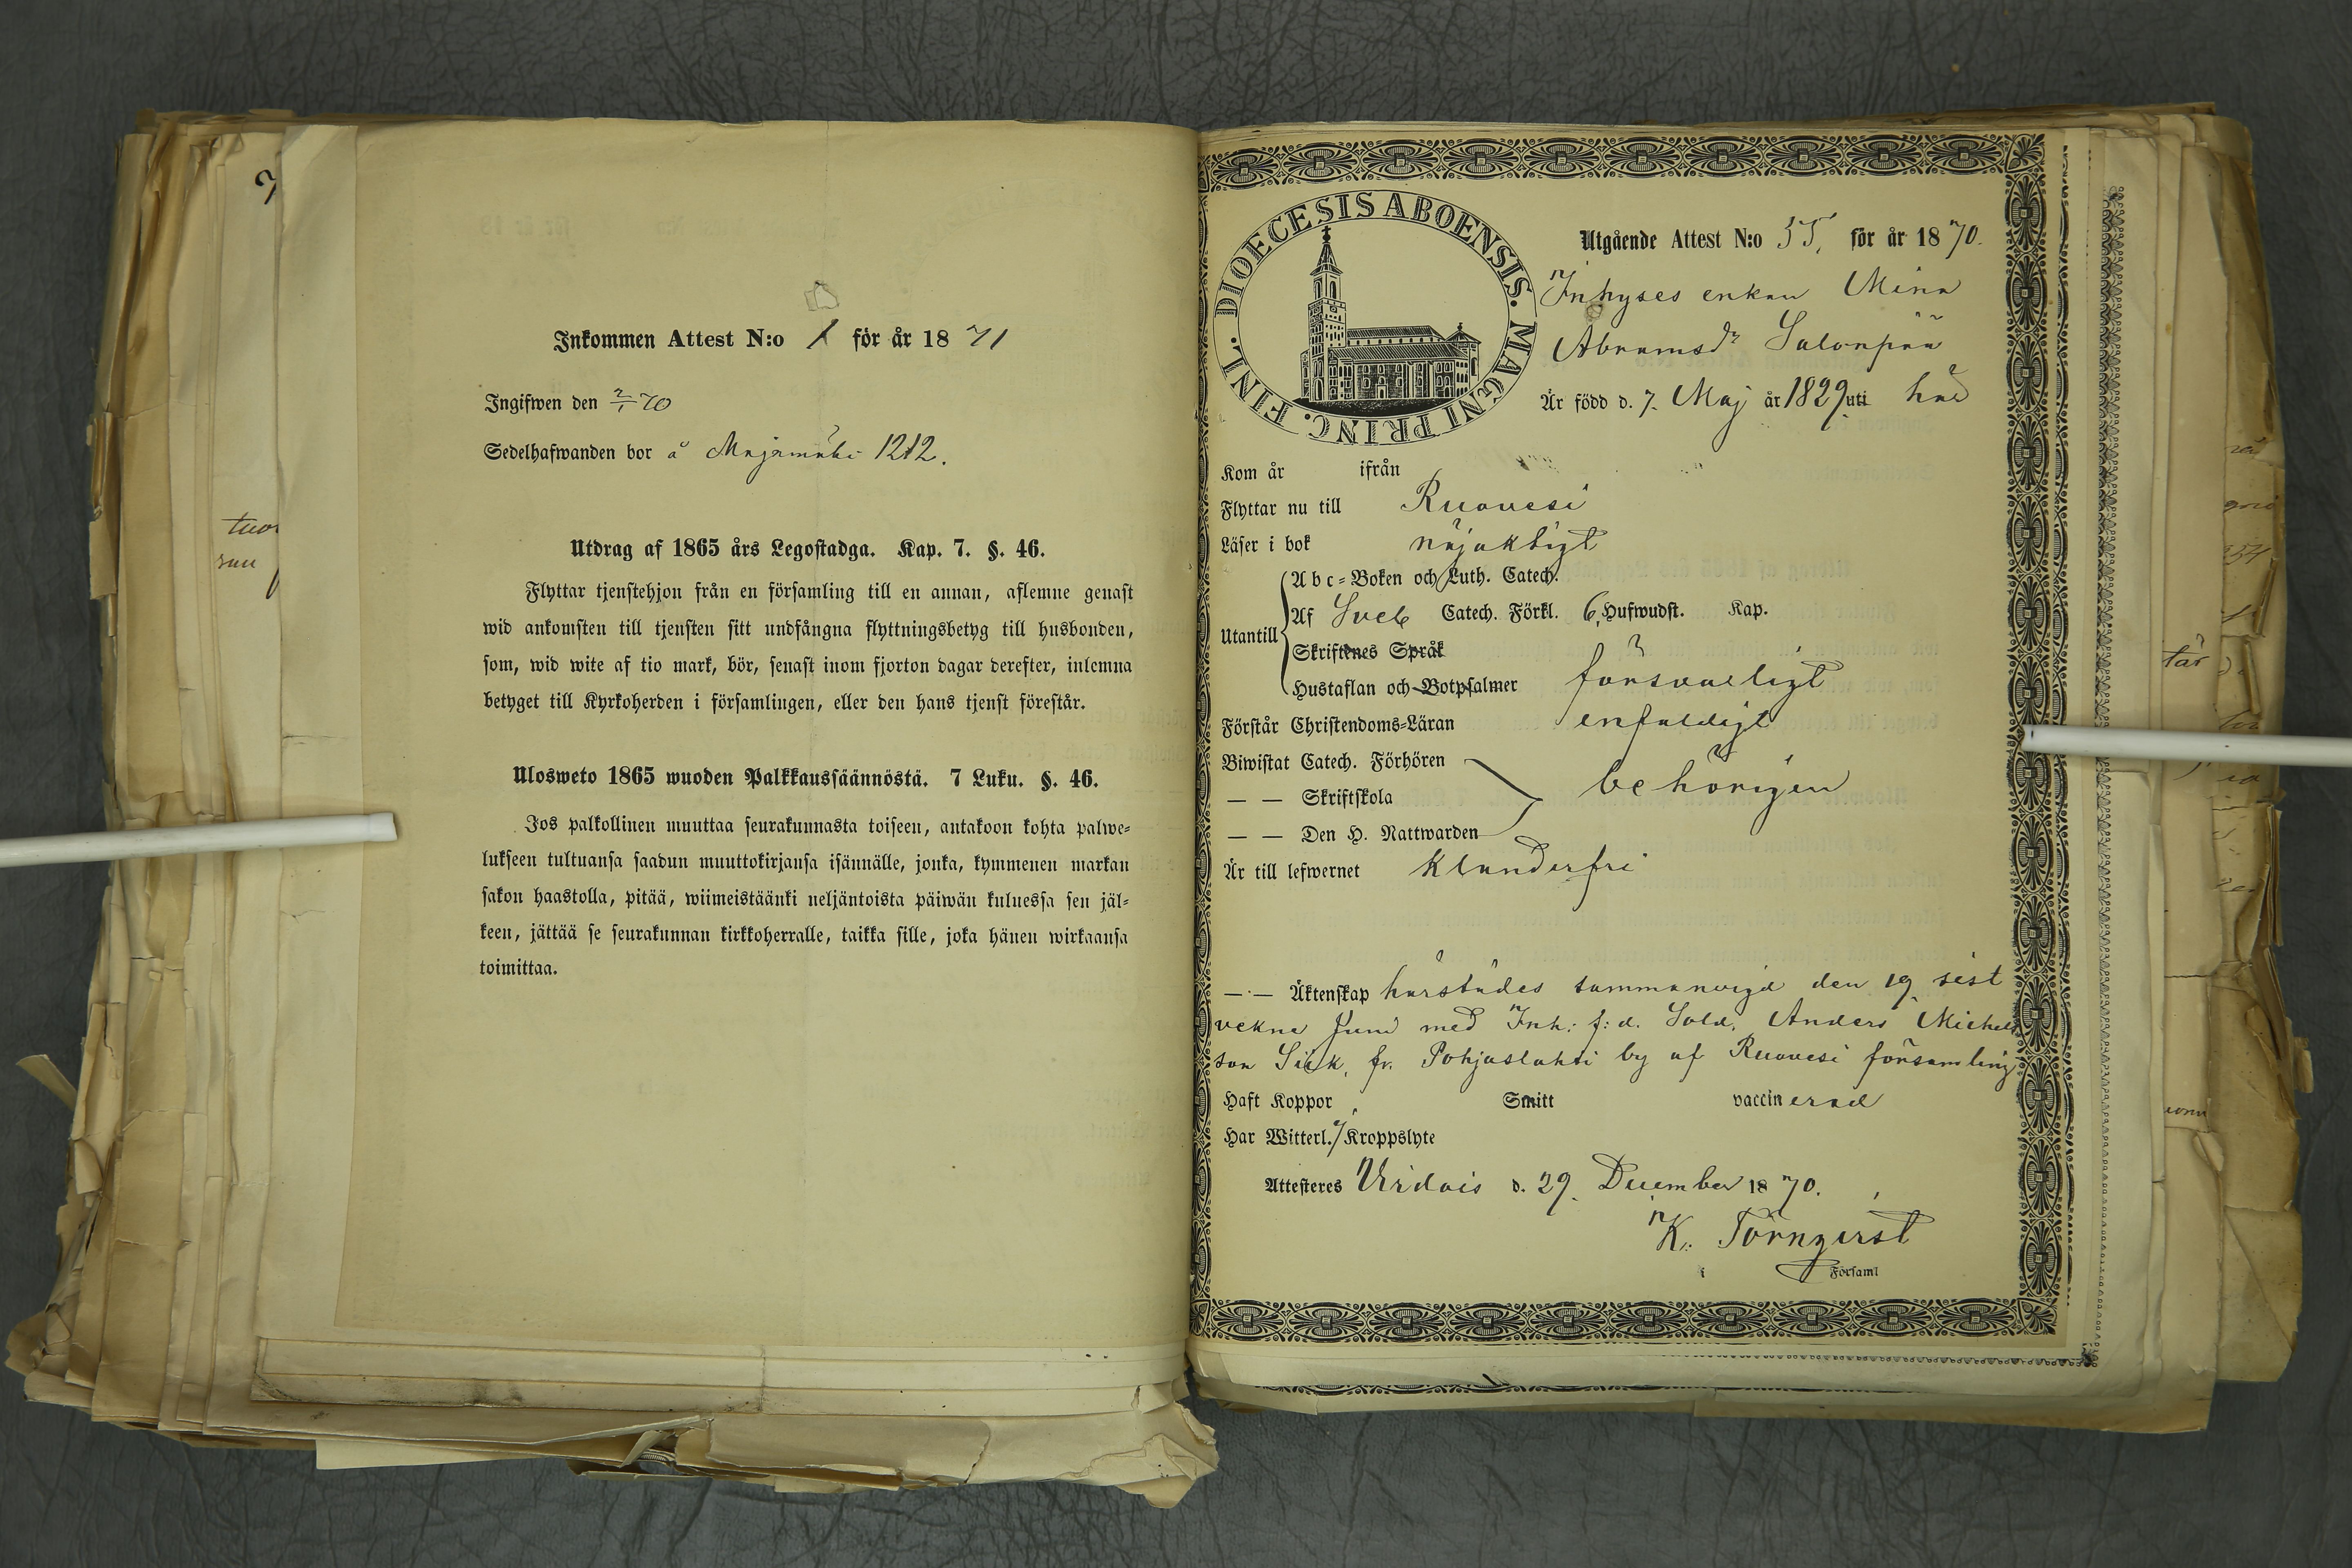 Inkommen Attest N:o 1 för år 1871
Ingifwen den 2/1 70
Sedelhafwanden bor å Majamäki 1212.
Utdrag af 1865 års Legostadga. Kap. 7. §. 46.
Flyttar tjenstehjon från en församling till en annan, aflemne genast
wid ankomsten till tjensten sitt undfångna flyttningsbetyg till husbonden,
som, wid wite af tio mark, bör, senast inom fjorton dagar derefter, inlemna
betyget till Kyrkoherden i församlingen, eller den hans tjenst förestår.
Ulosweto 1865 wuoden Palkkaussäännöstä. 7 Luku. §. 46.
Jos palkollinen muuttaa seurakunnasta toiseen, antakoon kohta palwe-
lukseen tultuansa saadun muuttokirjansa isännälle, jonka, kymmenen markan
sakon haastolla, pitää, wiimeistäänki neljäntoista päiwän kuluessa sen jäl-
keen, jättää se seurakunnan kirkkoherralle, taikka sille, joka hänen wirkaansa
toimittaa.
DIOECESIS ABOENSIS. MAGNI PRINC. FINL.
Utgående Attest N:o 55, för år 1870.
Inhyses enkan Mina
Abramsdr Salonpää
Är född d. 7. Maj år 1829 uti här
Kom år ifrån
Flyttar nu till Ruovesi
Läser i bok nöjaktigt
Abc-Boken och Luth. Catech.
Utantill Af Sveb Catech. Förkl. 6, Hufwudst. Kap.
Skriftenes Språk
Hustaflan och Botpsalmer försvarligt
Förstår Christendoms-Läran enfaldigt
Biwistat Catech. Förhören
— — Skriftskola behörigen
— — Den H. Nattwarden
Är till lefwernet klanderfri
— — Äktenskap härstädes sammanvigd den 19 sist
vekne Juni med Inh: f:d. Sold. Anders Michels
son Sick, fr. Pohjaslahti by af Ruovesi församling
Haft Koppor Smitt vaccinerad
Har Witterl. Kroppslyte
Attesteres Virdois d. 29. December 1870.
K. Törnqvist
Församl